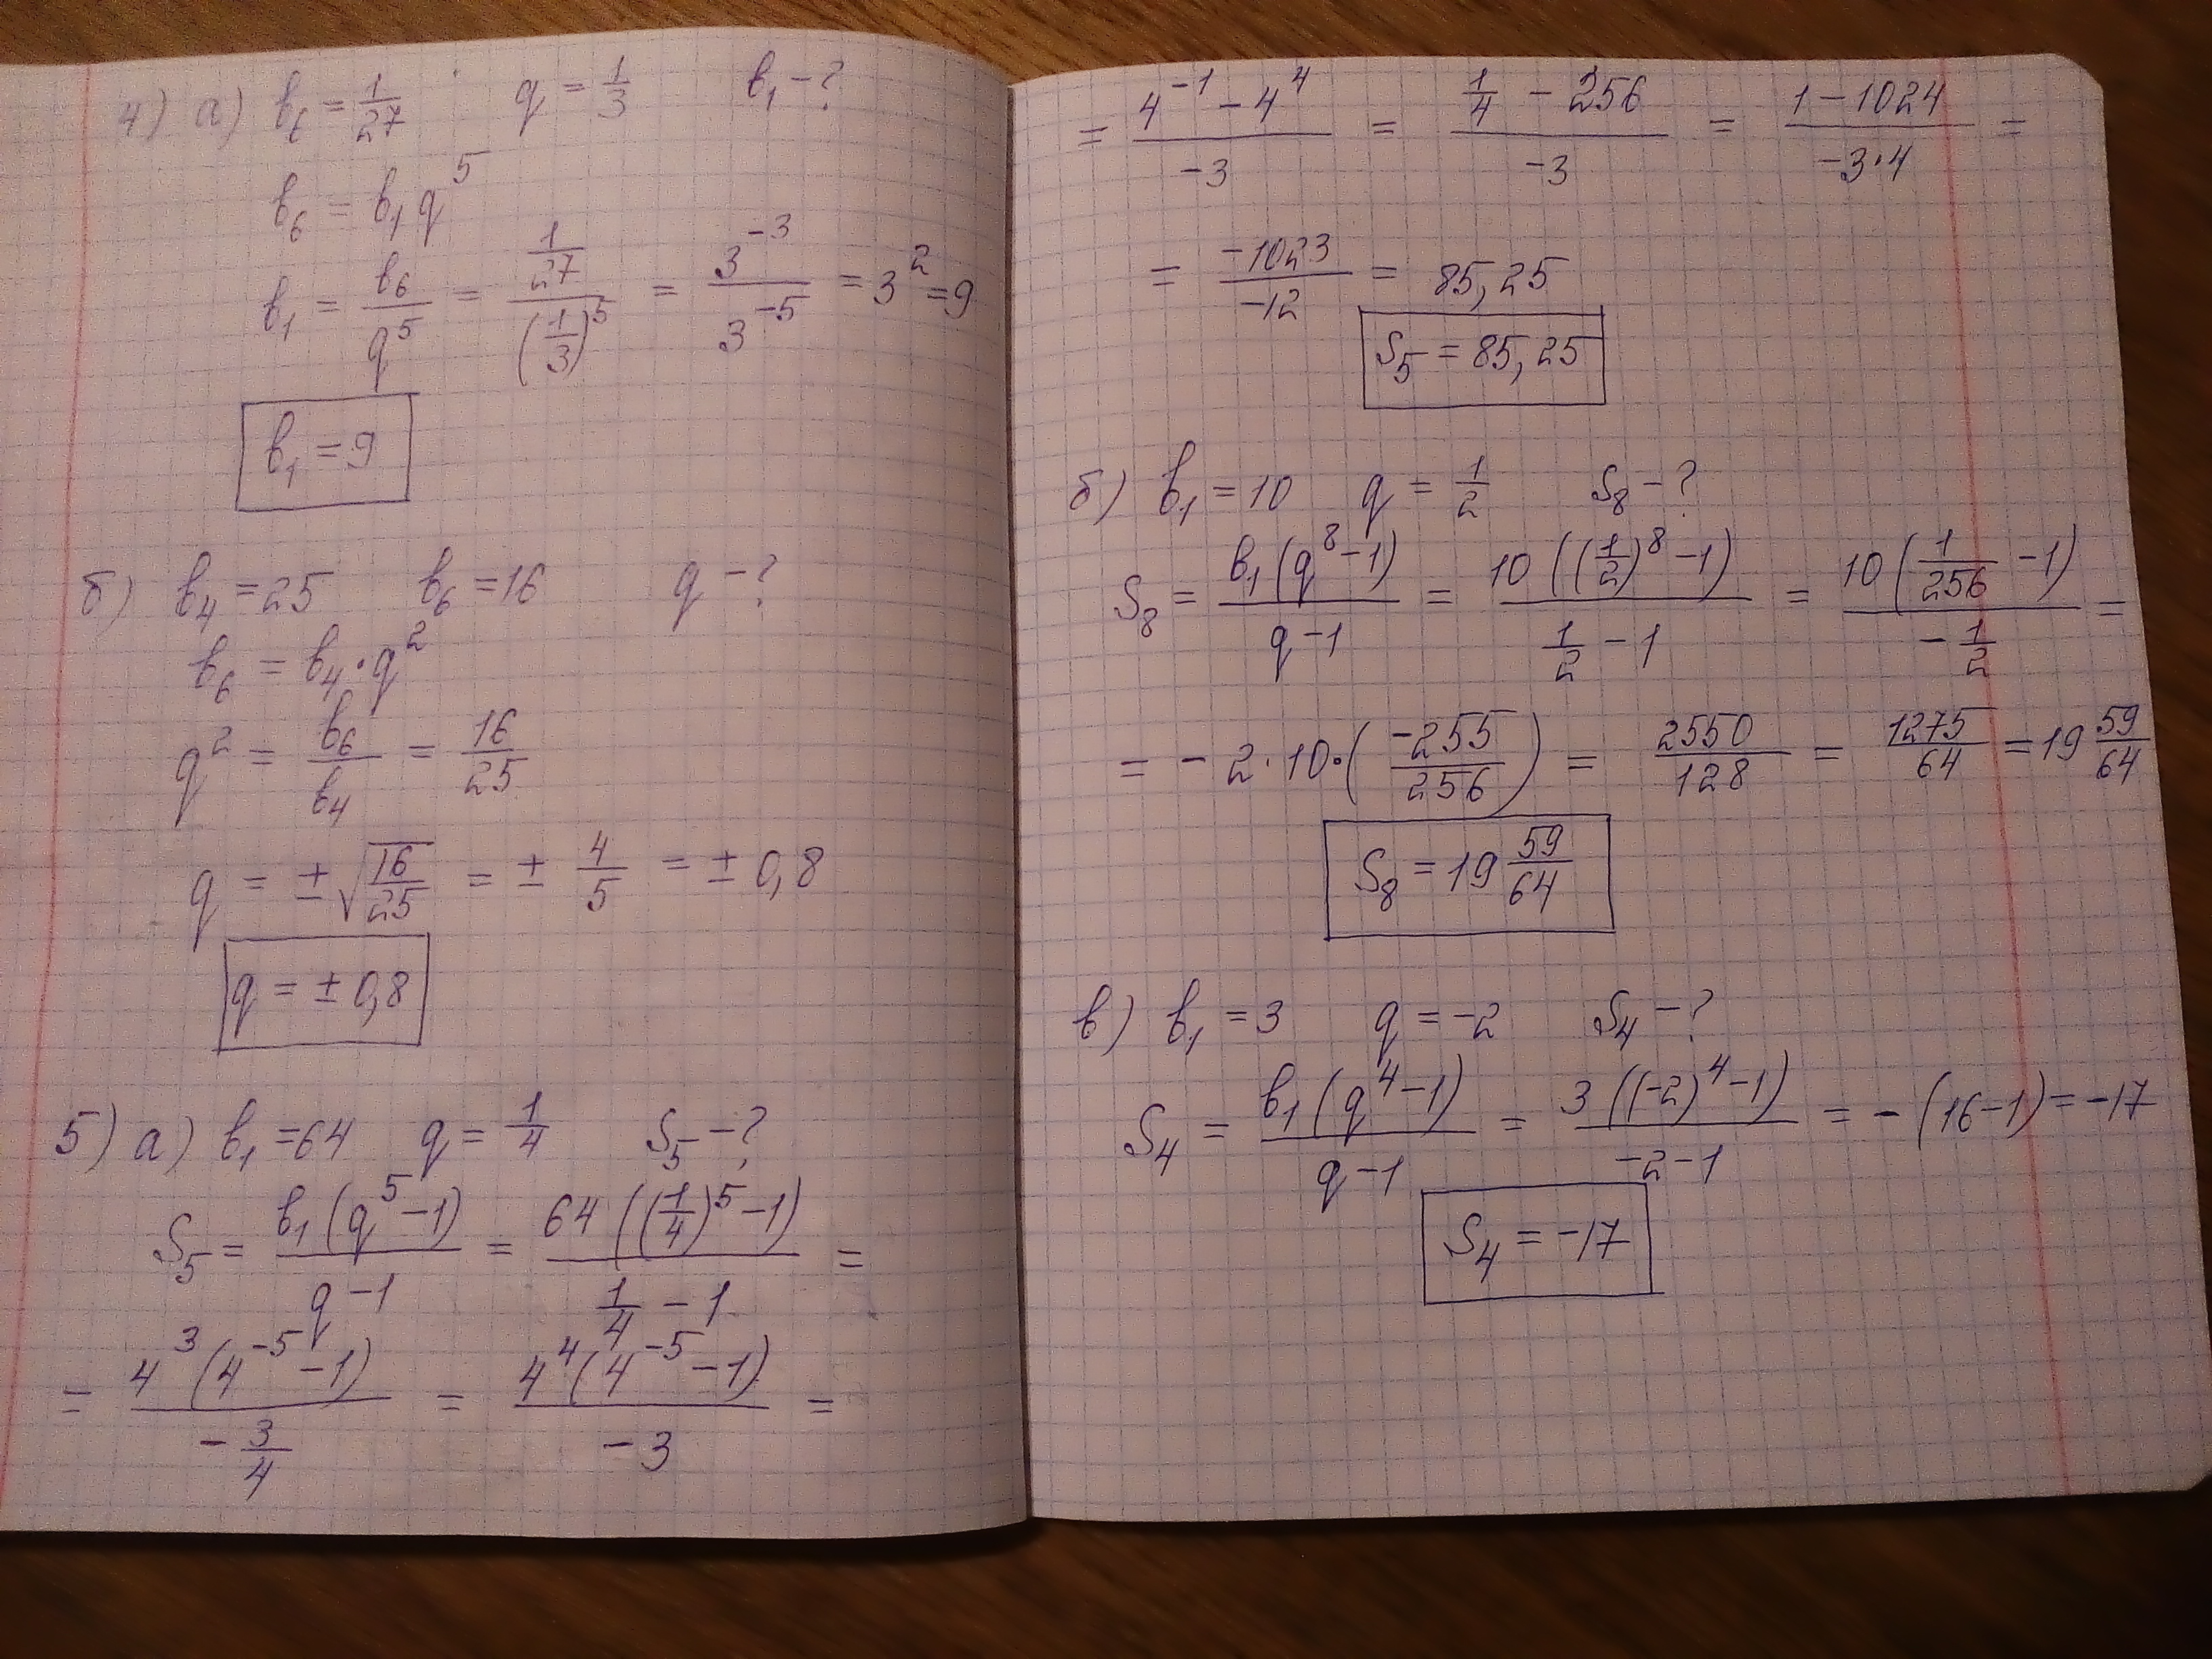 4) а) b₆ = 1/27 q = 1/3 b₁ - ?
b₆ = b₁q⁵
b₁ = b₆/q⁵ = (1/27)/(1/3)⁵ = 3⁻³/3⁻⁵ = 3² = 9
b₁ = 9
б) b₄ = 25 b₆ = 16 q - ?
b₆ = b₄·q²
q² = b₆/b₄ = 16/25
q = ±√(16/25) = ± 4/5 = ± 0,8
q = ± 0,8
5) а) b₁ = 64 q = 1/4 S₅ - ?
S₅ = b₁(q⁵-1)/(q-1) = 64((1/4)⁵-1)/(1/4 - 1) =
= 4³(4⁻⁵-1)/(-3/4) = 4⁴(4⁻⁵-1)/(-3) =
= (4⁻¹ - 4⁴)/(-3) = (1/4 - 256)/(-3) = (1 - 1024)/(-3·4) =
= -1023/-12 = 85,25
S₅ = 85,25
б) b₁ = 10 q = 1/2 S₈ - ?
S₈ = b₁(q⁸-1)/(q-1) = 10((1/2)⁸-1)/(1/2 - 1) = 10(1/256 - 1)/(-1/2) =
= -2·10·(-255/256) = 2550/128 = 1275/64 = 19 59/64
S₈ = 19 59/64
в) b₁ = 3 q = -2 S₄ - ?
S₄ = b₁(q⁴-1)/(q-1) = 3((-2)⁴-1)/(-2-1) = -(16-1) = -17
S₄ = -17